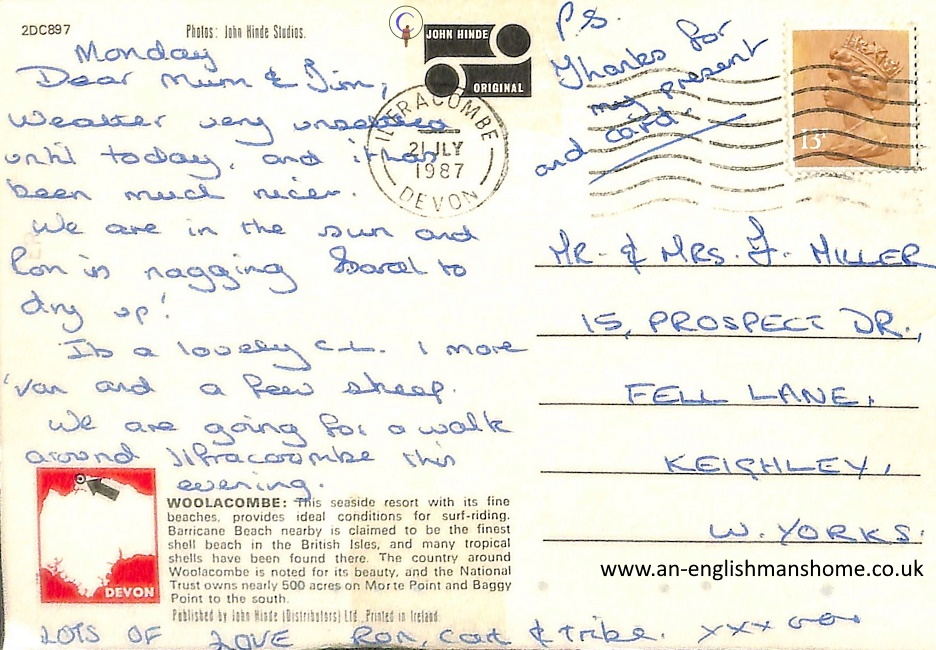 2DC897
Photos: John Hinde Studios.
C
JOHN HINDE
ORIGINAL
Monday
Dear Mum & Jim,
Weather very unsettled
until today, and it has
been much nicer.
We are in the sun and
Ron is nagging to
dry up!
Its a lovely C.L. 1 more
'van and a few sheep.
We are going for a walk
around Ilfracoombe this
evening.
ILFRACOMBE
21 JLY
1987
DEVON
P.S.
Thanks for
my present
and card.
13P
MR. & MRS. J. MILLER
15, PROSPECT DR.,
FELL LANE,
KEIGHLEY,
W. YORKS.
www.an-englishmanshome.co.uk
DEVON
WOOLACOMBE: This seaside resort with its fine
beaches, provides ideal conditions for surf-riding.
Barricane Beach nearby is claimed to be the finest
shell beach in the British Isles, and many tropical
shells have been found there. The country around
Woolacombe is noted for its beauty, and the National
Trust owns nearly 500 acres on Morte Point and Baggy
Point to the south.
Published by John Hinde (Distributors) Ltd., Printed in Ireland.
LOTS OF LOVE Ron, & tribe. xxx ooo